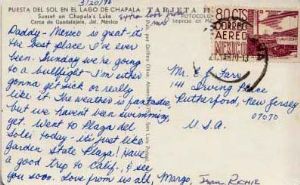 3/20/78
PUESTA DEL SOL EN EL LAGO DE CHAPALA
Sunset on Chapala's Lake
Costa de Guadalajara, Jal. México
TARJETA
Daddy - Mexico is great - it's
the best place I've ever
been. Sunday we're going
to a bullfight. I'm either
gonna get sick or really
like it. The weather is fantastic,
but we haven't been swimming
yet. Went to Plaza del
Sol today - it's just like
Garden State Plaza! Have
a good trip to Calif., & see
you soon. Love from us all, Margo,
80 CTS
CORREO
AEREO
MEXICO
Mr. E. C. Farr
Irving Place
Rutherford, New Jersey
07070
U.S.A.